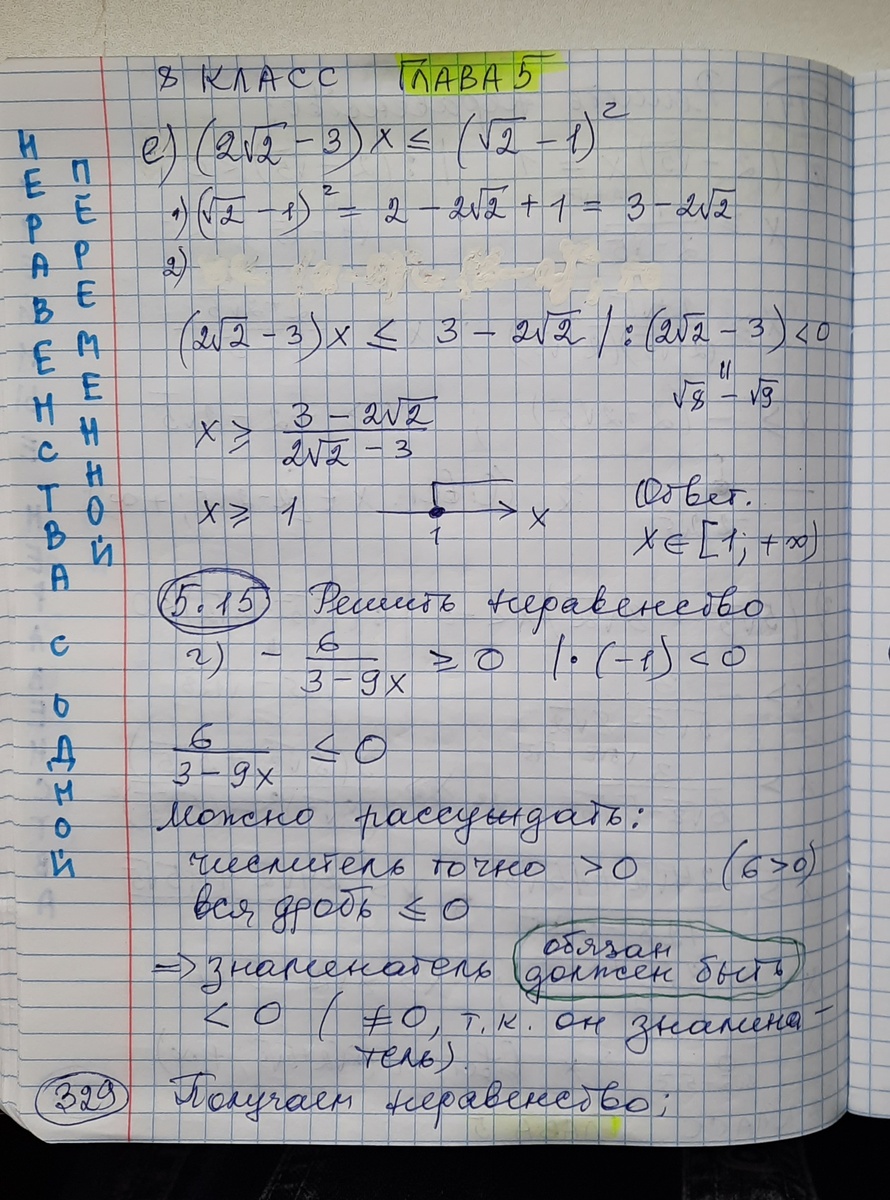 8 КЛАСС ГЛАВА 5
НЕРАВЕНСТВА С ОДНОЙ
ПЕРЕМЕННОЙ
е) (2√2 − 3) x ≤ (√2 − 1)²
1) (√2 − 1)² = 2 − 2√2 + 1 = 3 − 2√2
2)
(2√2 − 3) x ≤ 3 − 2√2 | : (2√2 − 3) < 0
√8 − √9
x ≥ (3 − 2√2)/(2√2 − 3)
x ≥ 1
1
x
Ответ.
x ∈ [1; +∞)
5.15 Решить неравенство
г) − 6/(3 − 9x) ≥ 0 | · (−1) < 0
6/(3 − 9x) ≤ 0
Можно рассуждать:
числитель точно > 0 (6 > 0)
вся дробь ≤ 0
обязан
⇒ знаменатель должен быть
< 0 ( ≠ 0, т.к. он знамена−
тель)
329 Получаем неравенство;